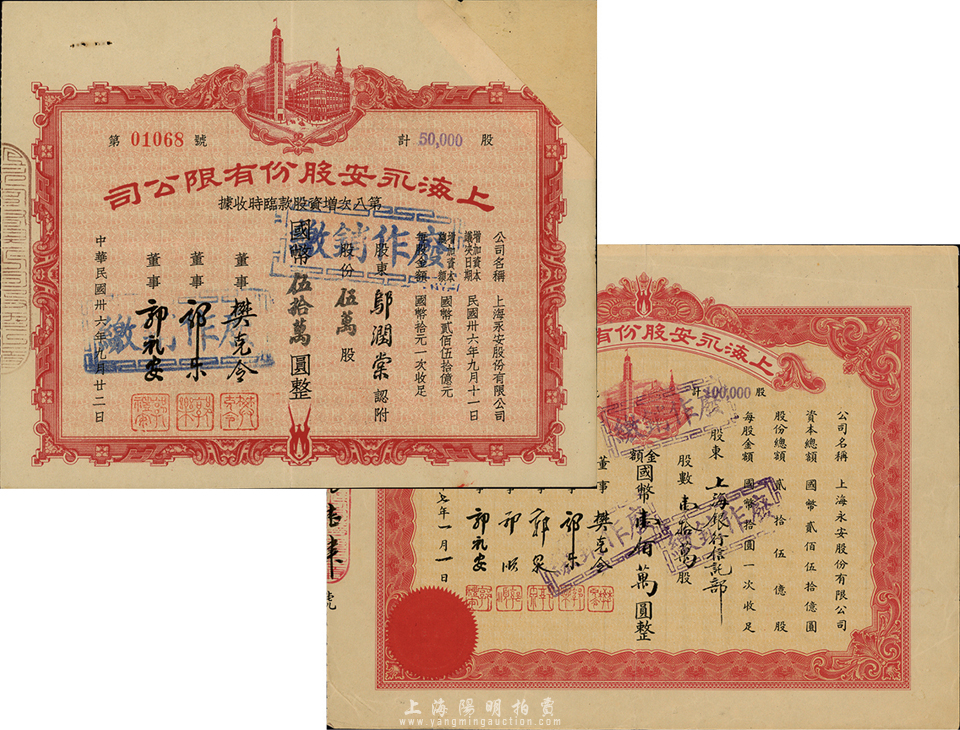 第 01068 號
計 50,000 股
上海永安股份有限公司
第八次增資股款臨時收據
公司名稱 上海永安股份有限公司
增加資本議決日期 民國卅六年九月十一日
增加資本總額 國幣貳佰伍拾億元
每股金額 國幣拾元一次收足
股東 鄔潤棠 認附
股份 伍萬 股
國幣 伍拾萬 圓整
董事 樊克令
董事 祁樂
董事 郭禮安
中華民國卅六年九月廿二日
作廢繳銷
作廢繳銷
上海永安股份有
計 100,000 股
公司名稱 上海永安股份有限公司
資本總額 國幣貳佰伍拾億圓
股份總額 貳拾伍億股
每股金額 國幣拾圓一次收足
股東 上海銀行信託部
股數 壹拾萬 股
金額 國幣 壹佰萬 圓整
董事 樊克令
事 祁樂
事 郭泉
事 郭順
事 郭禮安
七年一月一日
號
作廢
作廢
作廢
上海陽明拍賣
www.yangmingauction.com